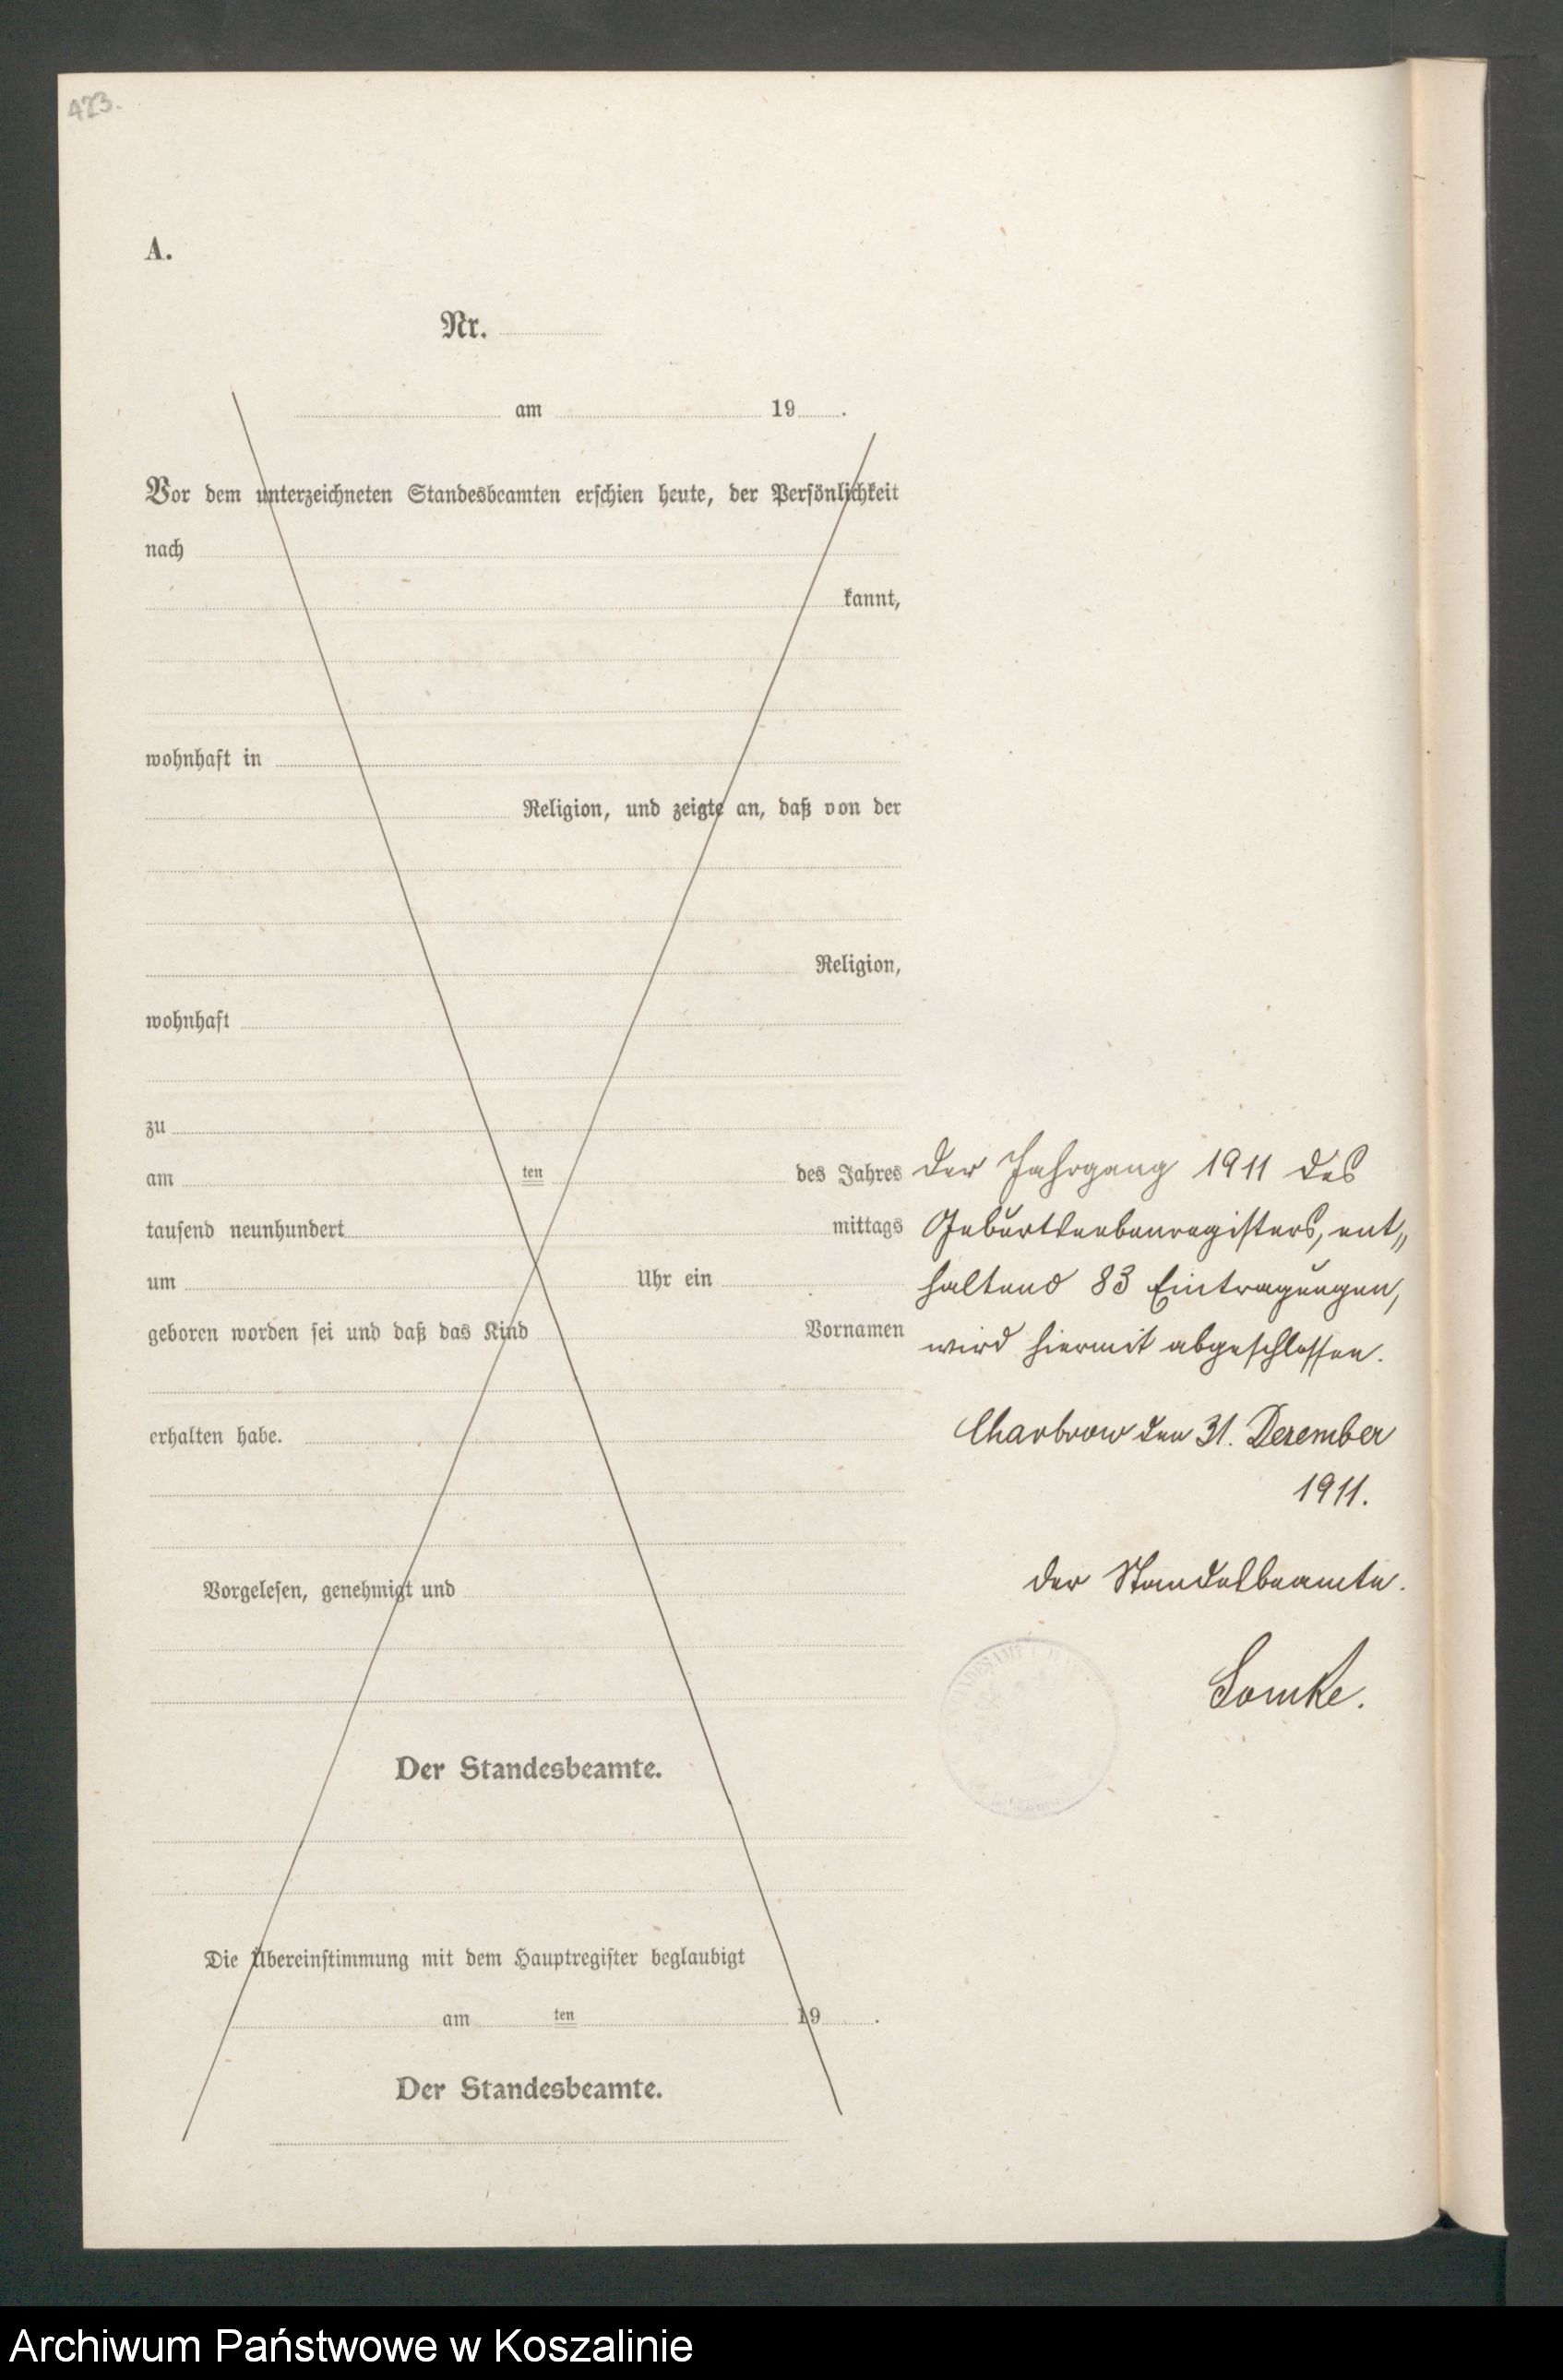 423.
A.
Nr.
am 19 .
Vor dem unterzeichneten Standesbeamten erschien heute, der Persönlichkeit
nach
kannt,
wohnhaft in
Religion, und zeigte an, daß von der
Religion,
wohnhaft
zu
am ten des Jahres
tausend neunhundert mittags
um Uhr ein
geboren worden sei und daß das Kind Vornamen
erhalten habe.
Vorgelesen, genehmigt und
Der Standesbeamte.
Die Übereinstimmung mit dem Hauptregister beglaubigt
am ten 19 .
Der Standesbeamte.
Der Jahrgang 1911 des
Geburtsnebenregisters, ent„
haltend 83 Eintragungen,
wird hiermit abgeschlossen.
Charbrow den 31. Dezember
1911.
Der Standesbeamte.
Archiwum Państwowe w Koszalinie